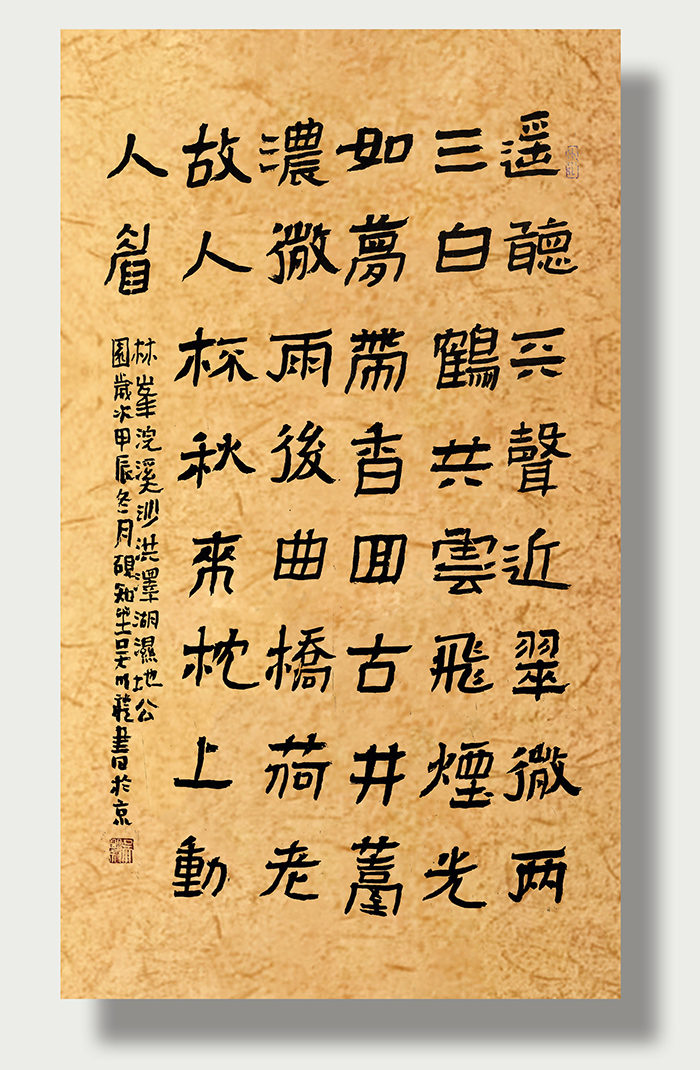 遥聽聲近翠微两
三白鶴共雲飛煙光
如夢帶香囬古井薹
濃微雨後曲橋荷老
故人杯秋來枕上動
人眉
林峯浣溪沙洪澤湖濕地公
園歲次甲辰冬月硯堂吴書於京